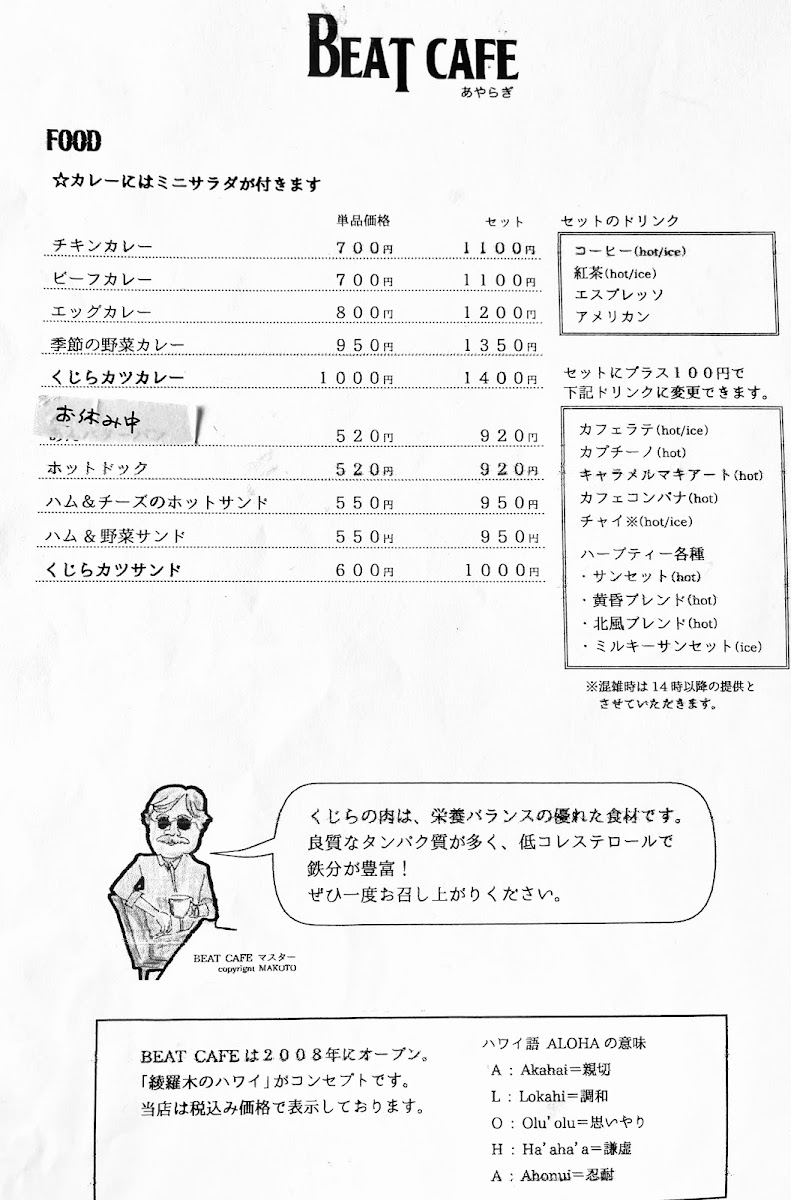 BEAT CAFE
あやらぎ
FOOD
☆カレーにはミニサラダが付きます
単品価格 セット
チキンカレー 700円 1100円
ビーフカレー 700円 1100円
エッグカレー 800円 1200円
季節の野菜カレー 950円 1350円
くじらカツカレー 1000円 1400円
お休み中
520円 920円
ホットドック 520円 920円
ハム&チーズのホットサンド 550円 950円
ハム&野菜サンド 550円 950円
くじらカツサンド 600円 1000円
セットのドリンク
コーヒー(hot/ice)
紅茶(hot/ice)
エスプレッソ
アメリカン
セットにプラス100円で
下記ドリンクに変更できます。
カフェラテ(hot/ice)
カプチーノ(hot)
キャラメルマキアート(hot)
カフェコンパナ(hot)
チャイ※(hot/ice)
ハーブティー各種
・サンセット(hot)
・黄昏ブレンド(hot)
・北風ブレンド(hot)
・ミルキーサンセット(ice)
※混雑時は14時以降の提供と
させていただきます。
くじらの肉は、栄養バランスの優れた食材です。
良質なタンパク質が多く、低コレステロールで
鉄分が豊富!
ぜひ一度お召し上がりください。
BEAT CAFE マスター
copyright MAKOTO
BEAT CAFEは2008年にオープン。
「綾羅木のハワイ」がコンセプトです。
当店は税込み価格で表示しております。
ハワイ語 ALOHAの意味
A : Akahai=親切
L : Lokahi=調和
O : Olu'olu=思いやり
H : Ha'aha'a=謙虚
A : Ahonui=忍耐